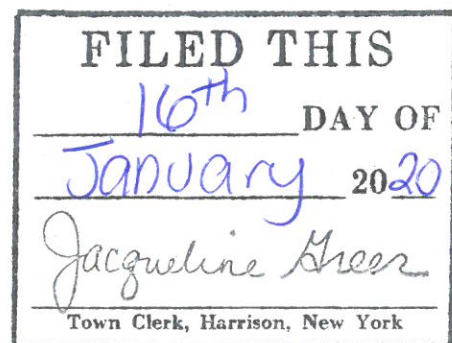 FILED THIS
16th DAY OF
January 2020
Jacqueline Greer
Town Clerk, Harrison, New York